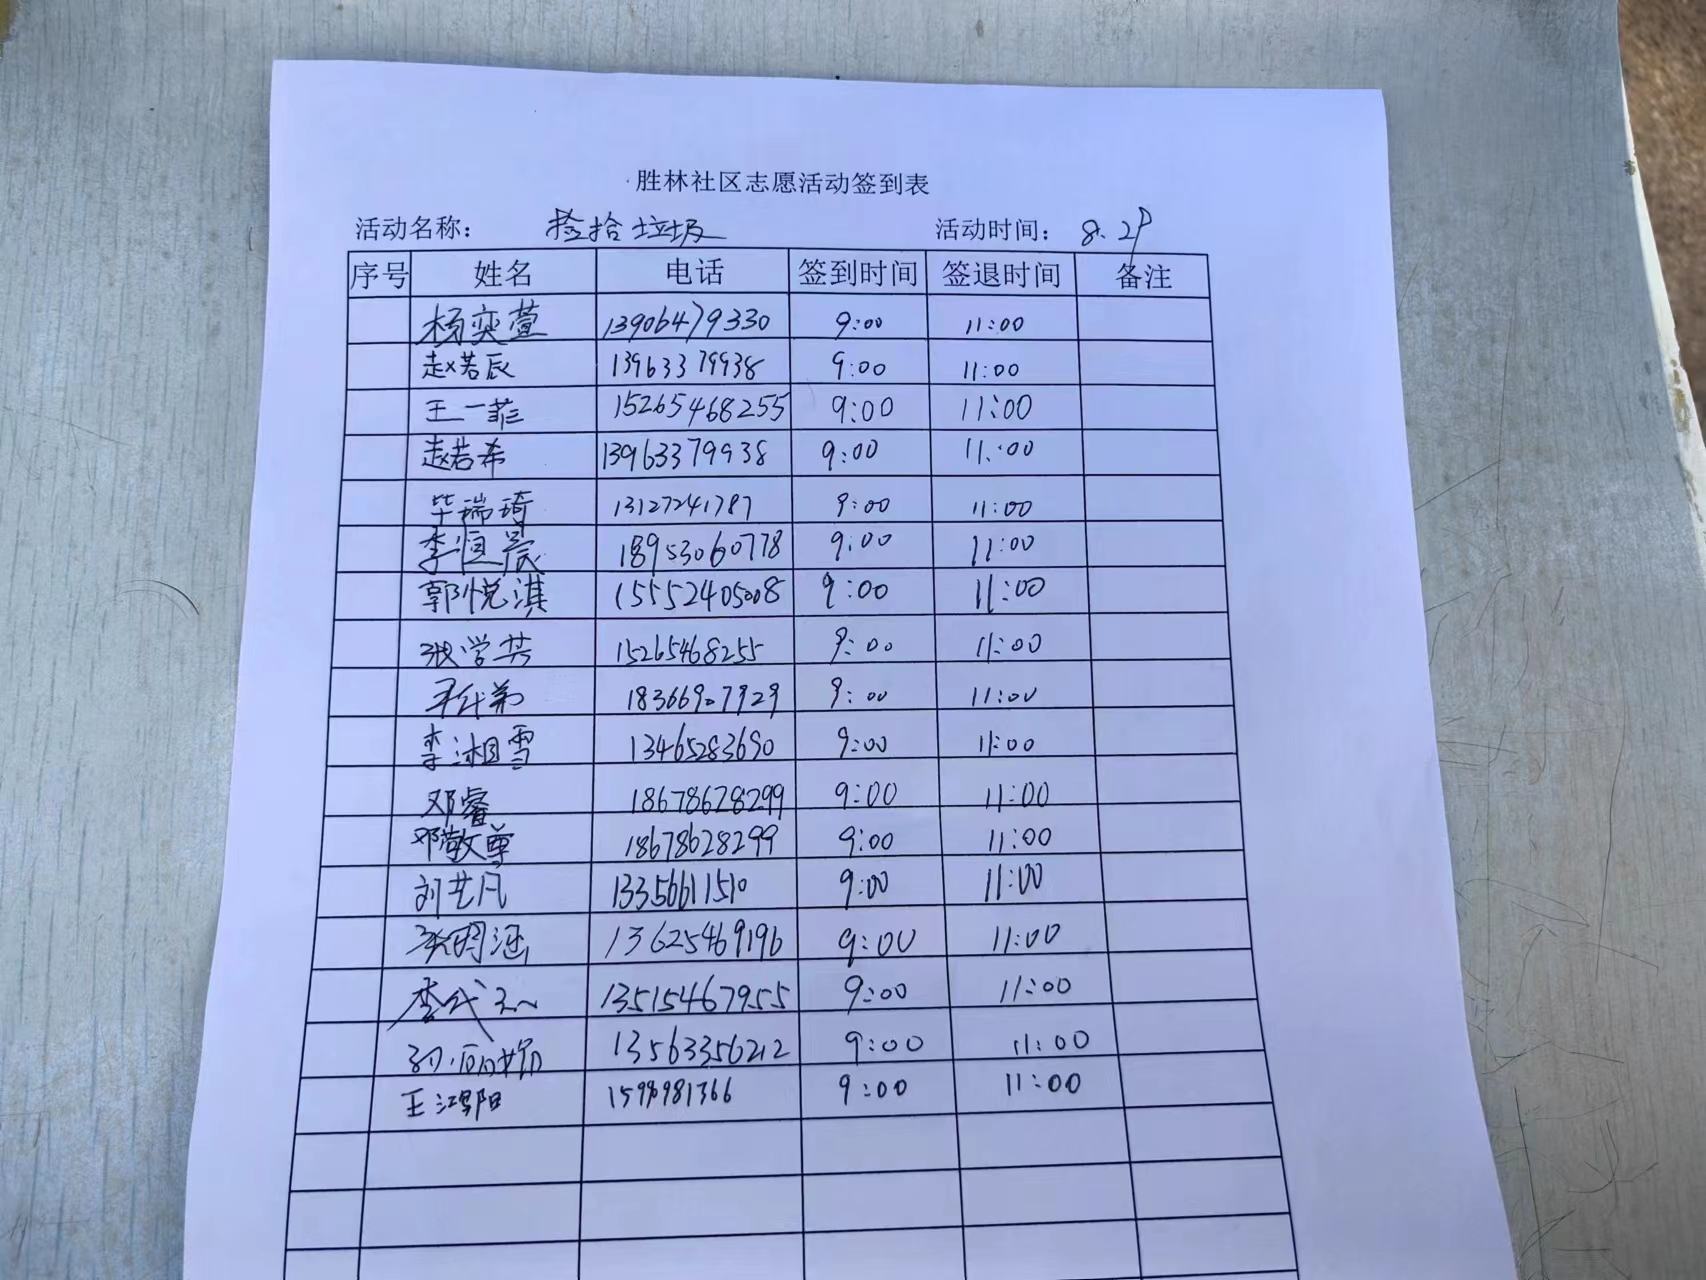 胜林社区志愿活动签到表
活动名称： 捡拾垃圾 活动时间： 8.29
序号 姓名 电话 签到时间 签退时间 备注
杨奕萱 13906479330 9:00 11:00
赵若辰 13963379938 9:00 11:00
王一菲 15265468255 9:00 11:00
赵若希 13963379938 9:00 11:00
毕瑞琦 13127241787 9:00 11:00
李恒晨 18953060778 9:00 11:00
郭悦淇 15552405008 9:00 11:00
张学芸 15265468255 9:00 11:00
18366907929 9:00 11:00
李湘雪 13465283690 9:00 11:00
邓睿 18678628299 9:00 11:00
邓敬尊 18678628299 9:00 11:00
刘艺凡 13356611510 9:00 11:00
张明涵 13625469196 9:00 11:00
13515467955 9:00 11:00
13563356212 9:00 11:00
王鸿阳 9:00 11:00